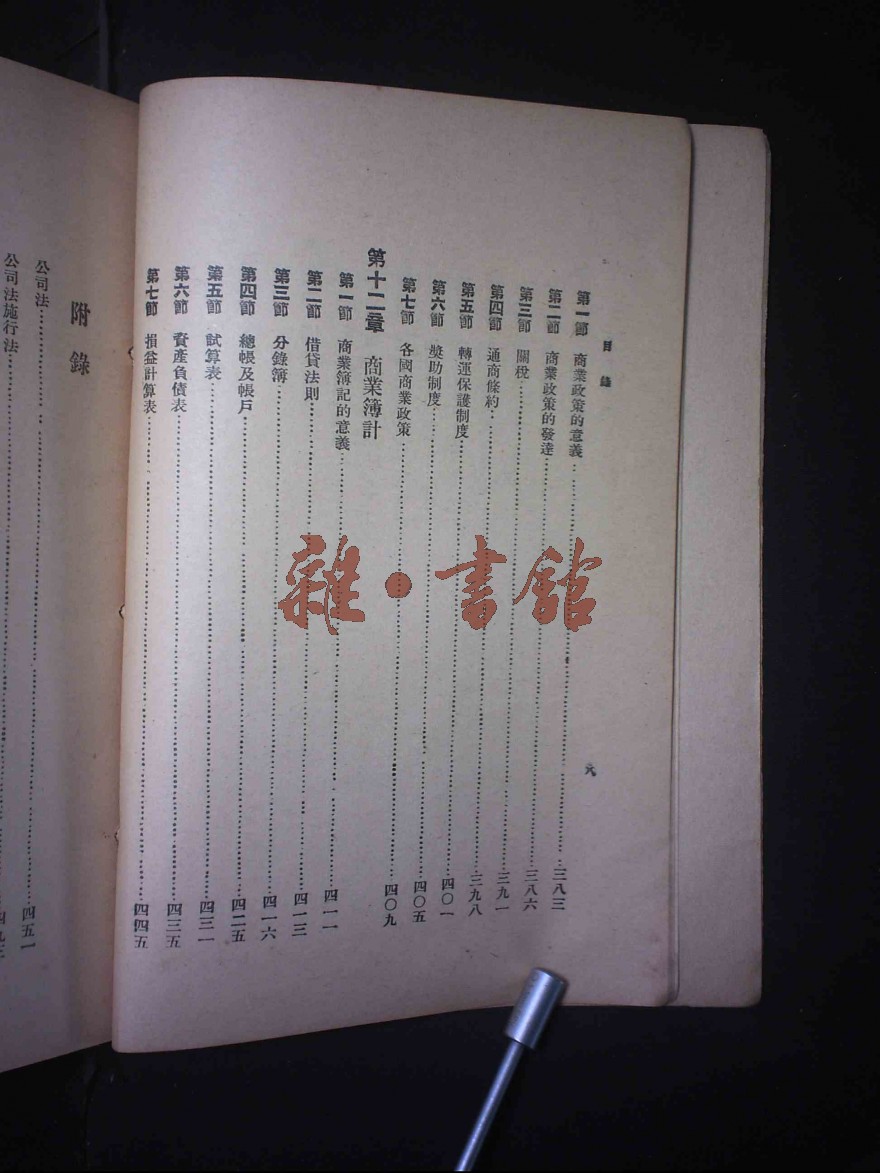 目錄
第一節 商業政策的意義……三八三
第二節 商業政策的發達……三八六
第三節 關稅……三九一
第四節 通商條約……三九八
第五節 轉運保護制度……四〇一
第六節 獎助制度……四〇五
第七節 各國商業政策……四〇九
第十二章 商業簿計
第一節 商業簿記的意義……四一一
第二節 借貸法則……四一三
第三節 分錄簿……四一六
第四節 總帳及帳戶……四二五
第五節 試算表……四三一
第六節 資產負債表……四三五
第七節 損益計算表……四四五
附錄
公司法……四五一
公司法施行法……
雜·書館